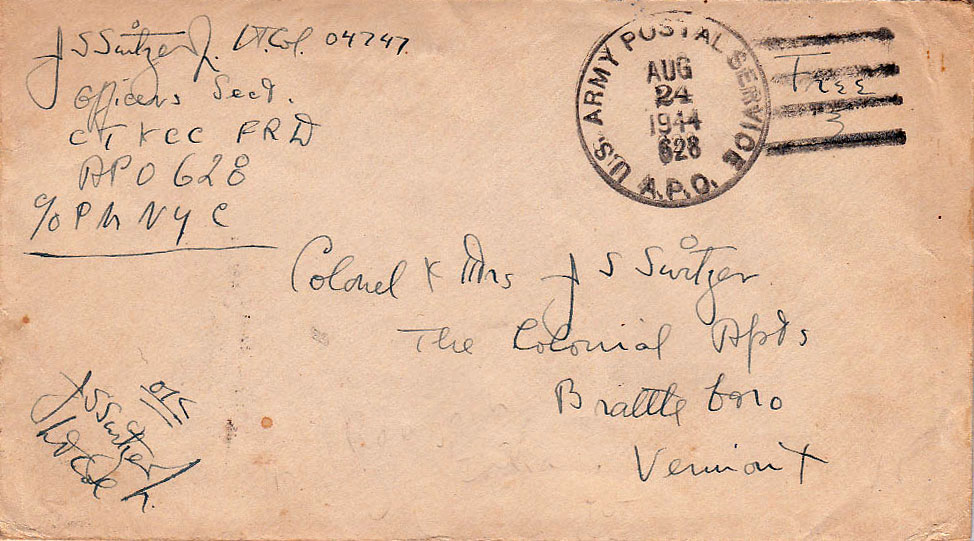 J S Switzer Jr. Lt Col. 04747.
Officers Sect.
C T & CC FRD
APO 628
c/o PM NYC
U.S. ARMY POSTAL SERVICE
AUG
24
1944
628
A.P.O.
Free
Colonel & Mrs J S Switzer
The Colonial Apts
Brattleboro
Vermont
OK
J S Switzer Jr.
Lt Col